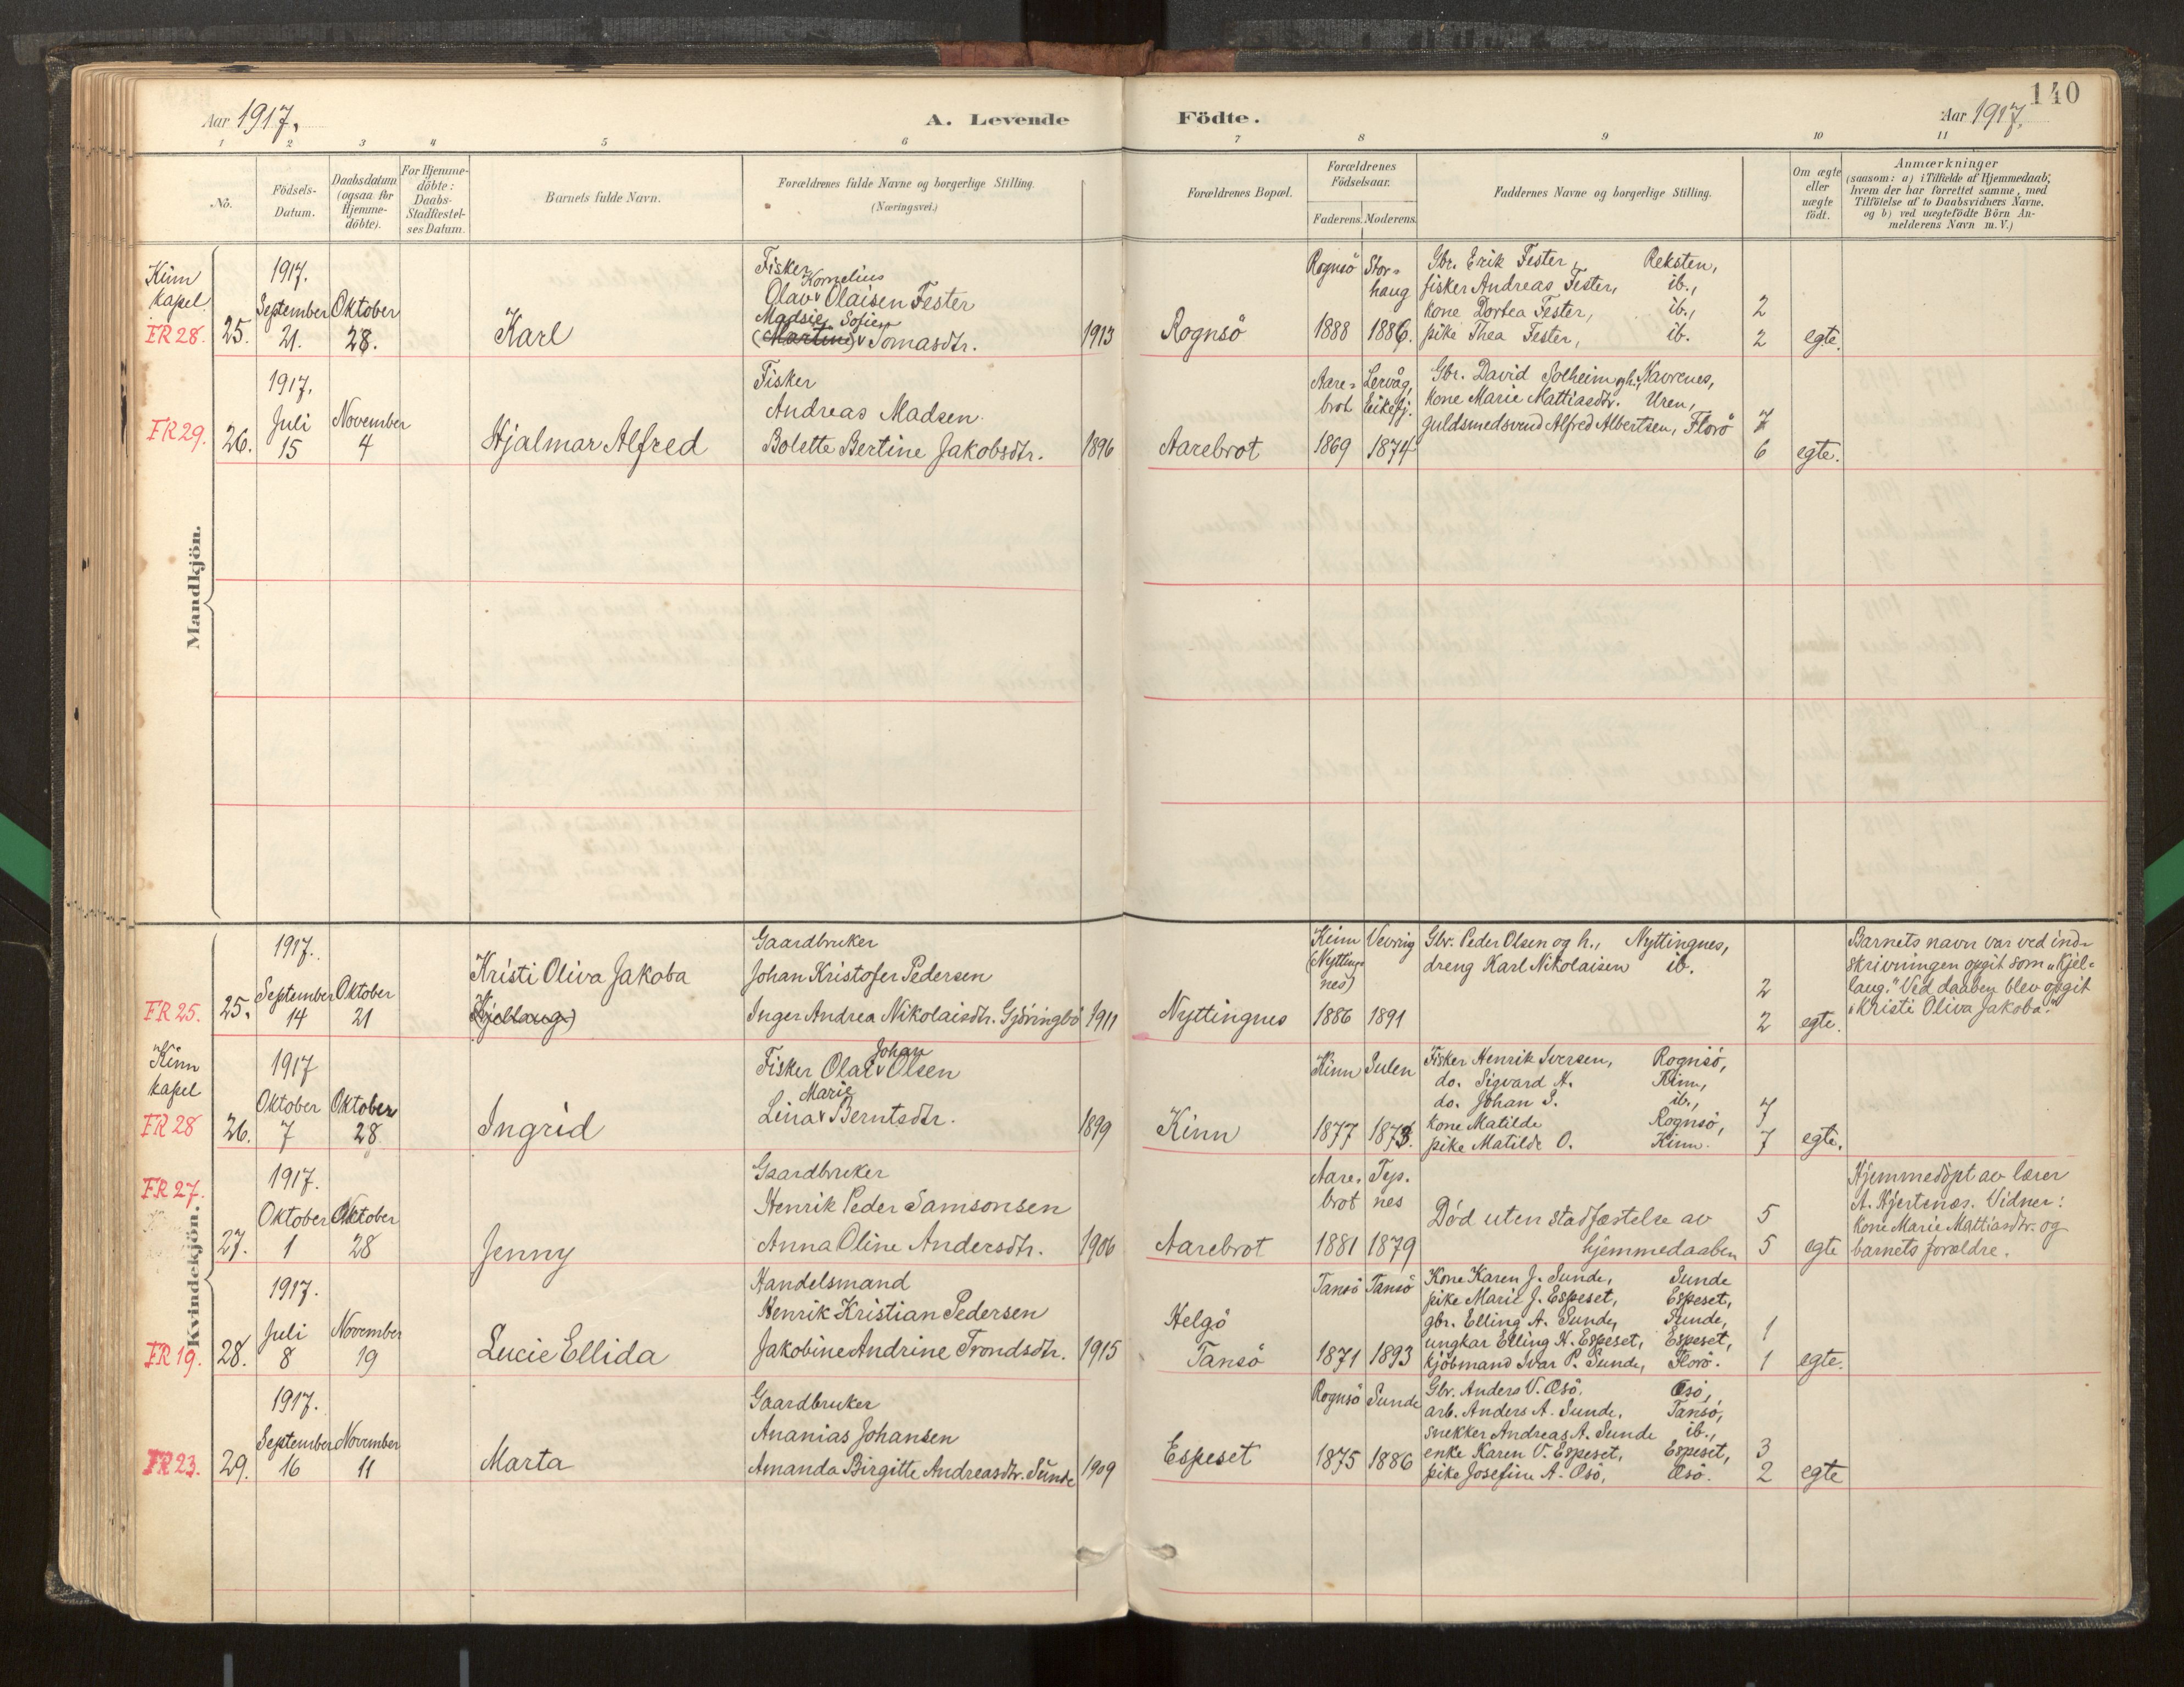 140
Aar 1917.
A. Levende Födte.
Aar 1917.
1 2 3 4 5 6 7 8 9 10 11
No.
Födsels-
Datum.
Daabsdatum
(ogsaa for
Hjemme-
döbte).
For Hjemme-
döbte:
Daabs-
Stadfæstel-
ses Datum.
Barnets fulde Navn.
Forældrenes fulde Navne og borgerlige Stilling.
(Næringsvei.)
Forældrenes Bopæl.
Forældrenes
Födselsaar.
Faderens. Moderens.
Faddernes Navne og borgerlige Stilling.
Om ægte
eller
uægte
födt.
Anmærkninger
(saasom: a) i Tilfælde af Hjemmedaab,
hvem der har forrettet samme, med
Tilföielse af to Daabsvidners Navne.
og b) ved uægtefödte Börn An-
melderens Navn m. V.)
Mandkjön.
Kinn
kapel
FR 28.
25.
1917.
September
21.
Oktober
28.
Karl
Fisker
Kornelius
Olav Olaisen Fester
Madsie Sofie
(Martine) Tomasdtr.
1913
Rognsö
Rognsö
1888
Stor-
haug
1886.
Gbr. Erik Fester, Reksten,
fisker Andreas Fester, ib.,
kone Dortea Fester, ib.,
pike Thea Fester, ib.
2
2
egte.
FR 29.
26.
1917.
Juli
15
November
4
Hjalmar Alfred
Fisker
Andreas Madsen
Bolette Bertine Jakobsdtr.
1896
Aarebrot
Aare-
brot
1869
Lervåg,
Eikefj.
1874
Gbr. David Solheim og h., Navrenes,
kone Marie Mattiasdtr. Uren,
guldsmedsvend Alfred Albertsen, Florö
7
6
egte.
Kvindekjön.
FR 25.
25.
1917.
September
14
Oktober
21
Kristi Oliva Jakoba
(Kjellaug)
Gaardbruker
Johan Kristofer Pedersen
Inger Andrea Nikolaisdtr. Gjöringbö
1911
Nyttingnes
Kinn
(Nytting-
nes)
1886
Vevring
1891
Gbr. Peder Olsen og h., Nyttingnes,
dreng Karl Nikolaisen ib.
2
2
egte.
Barnets navn var ved ind-
skrivningen opgit som "Kjel-
laug." Ved daaben blev opgit
"Kristi Oliva Jakoba".
Kinn
kapel
FR 28
26.
1917
Oktober
7
Oktober
28
Ingrid
Johan
Fisker Olai Olsen
Marie
Lina Berntsdtr.
1899
Kinn
Kinn
1877
Sulen
1873.
Fisker Henrik Iversen, Rognsö,
do. Sigvard H. Kinn,
do. Johan S. ib.,
kone Matilde Rognsö,
pike Matilde O. Kinn.
7
7
egte.
FR 27.
27.
1917.
Oktober
1
Oktober
28
Jenny
Gaardbruker
Henrik Peder Samsonsen
Anna Oline Andersdtr.
1906
Aarebrot
Aare-
brot
1881
Typ.
nes
1879
Död uten stadfæstelse av
hjemmedaaben
5
5
egte
Hjemmedöpt av lærer
A. Hjertenæs. Vidner:
Kone Marie Mattiasdtr. og
barnets forældre.
FR 19.
28.
1917.
Juli
8
November
19
Lucie Ellida
Handelsmand
Henrik Kristian Pedersen
Jakobine Andrine Trondsdtr.
1915
Helgö
Tansö
Tansö
1871
Tansö
1893
Kone Karen J. Sunde, Sunde
pike Marie J. Espeset, Espeset,
gbr. Elling A. Sunde, Sunde,
ungkar Elling H. Espeset, Espeset,
kjöbmand Ivar P. Sunde, Florö.
1
1
egte.
FR 23.
29.
1917.
September
16
November
11
Marta
Gaardbruker
Ananias Johansen
Amanda Birgitte Andreasdtr. Sunde
1909
Espeset
Rognsö
1875
Sunde
1886
Gbr. Anders V. Osö. Osö,
arb. Anders A. Sunde, Tansö,
snekker Andreas A. Sunde ib.,
enke Karen V. Espeset, Espeset,
pike Josefine A. Osö, Osö.
3
2
egte